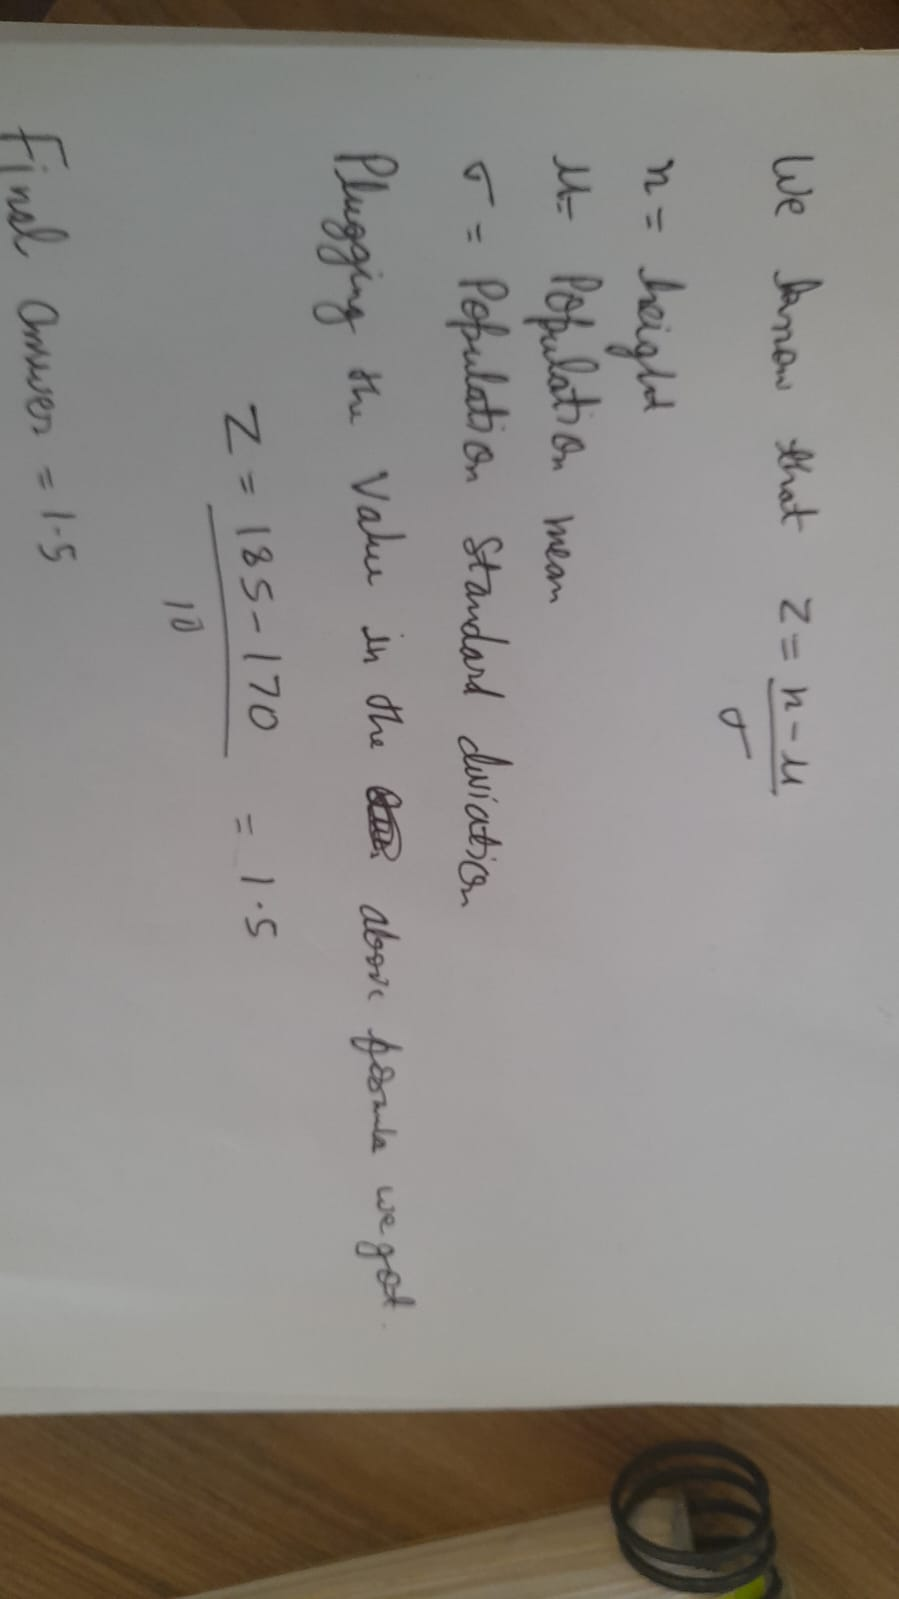 We know that z = n - μ
σ
n = height
μ = Population mean
σ = Population standard diviation
Plugging the Value in the above formula we got.
Z = 185 - 170 = 1.5
10
Final answer = 1.5